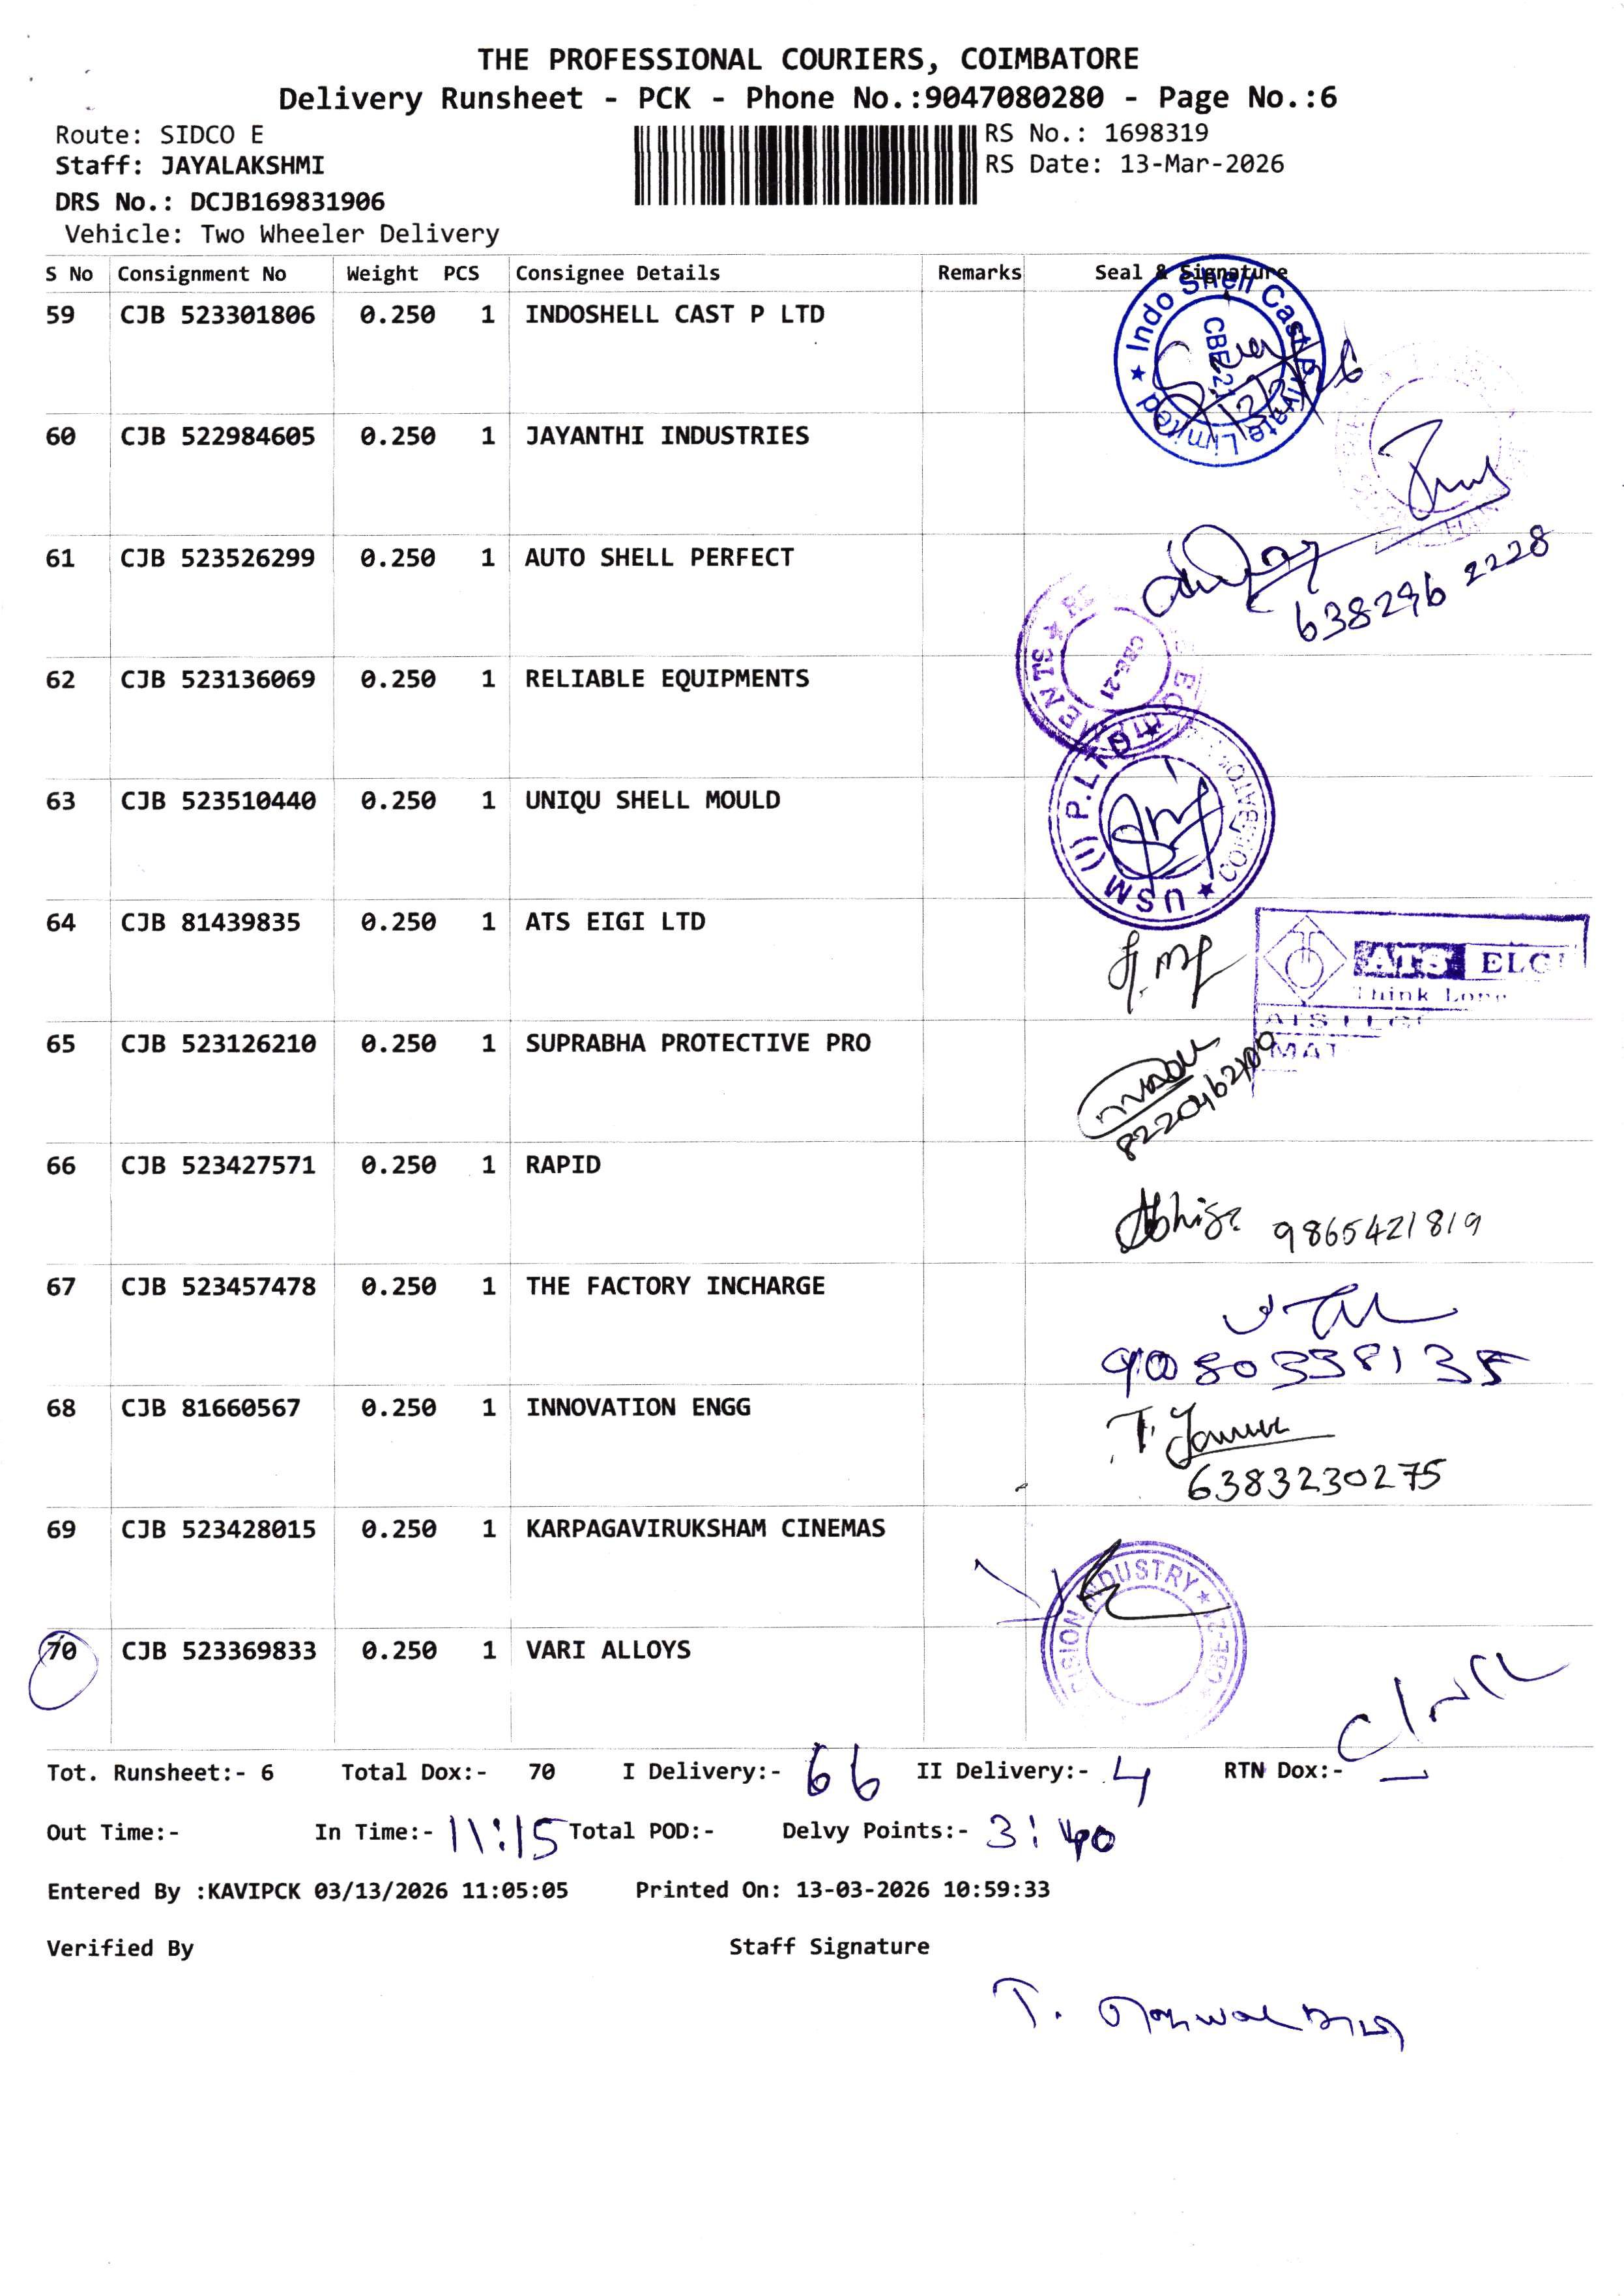 THE PROFESSIONAL COURIERS, COIMBATORE
Delivery Runsheet - PCK - Phone No.:9047080280 - Page No.:6
Route: SIDCO E
RS No.: 1698319
Staff: JAYALAKSHMI
RS Date: 13-Mar-2026
DRS No.: DCJB169831906
Vehicle: Two Wheeler Delivery
S No Consignment No Weight PCS Consignee Details Remarks Seal & Signature
59 CJB 523301806 0.250 1 INDOSHELL CAST P LTD
Indo Shell Cast Private Limited
CBE-21
60 CJB 522984605 0.250 1 JAYANTHI INDUSTRIES
61 CJB 523526299 0.250 1 AUTO SHELL PERFECT
638296 2228
62 CJB 523136069 0.250 1 RELIABLE EQUIPMENTS
CBE-21
63 CJB 523510440 0.250 1 UNIQU SHELL MOULD
USM (I) P.LTD
64 CJB 81439835 0.250 1 ATS EIGI LTD
ATS ELGI
Think
65 CJB 523126210 0.250 1 SUPRABHA PROTECTIVE PRO
66 CJB 523427571 0.250 1 RAPID
9865421819
67 CJB 523457478 0.250 1 THE FACTORY INCHARGE
68 CJB 81660567 0.250 1 INNOVATION ENGG
6383230275
69 CJB 523428015 0.250 1 KARPAGAVIRUKSHAM CINEMAS
INDUSTRY
70 CJB 523369833 0.250 1 VARI ALLOYS
Tot. Runsheet:- 6 Total Dox:- 70 I Delivery:- 66 II Delivery:- 4 RTN Dox:- —
Out Time:- In Time:- 11:15 Total POD:- Delvy Points:- 3:40
Entered By :KAVIPCK 03/13/2026 11:05:05 Printed On: 13-03-2026 10:59:33
Verified By Staff Signature